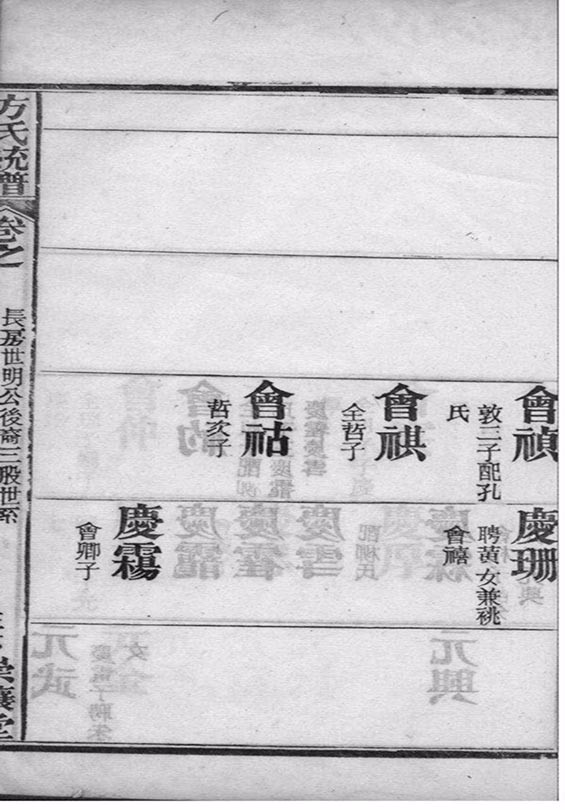 會禎
敦三子配孔
氏
會祺
全哲子
會祜
哲次子
慶珊
聘黃女兼祧
會禧
慶靄
會卿子
方氏統譜
卷之
長房世明公後裔三股世系